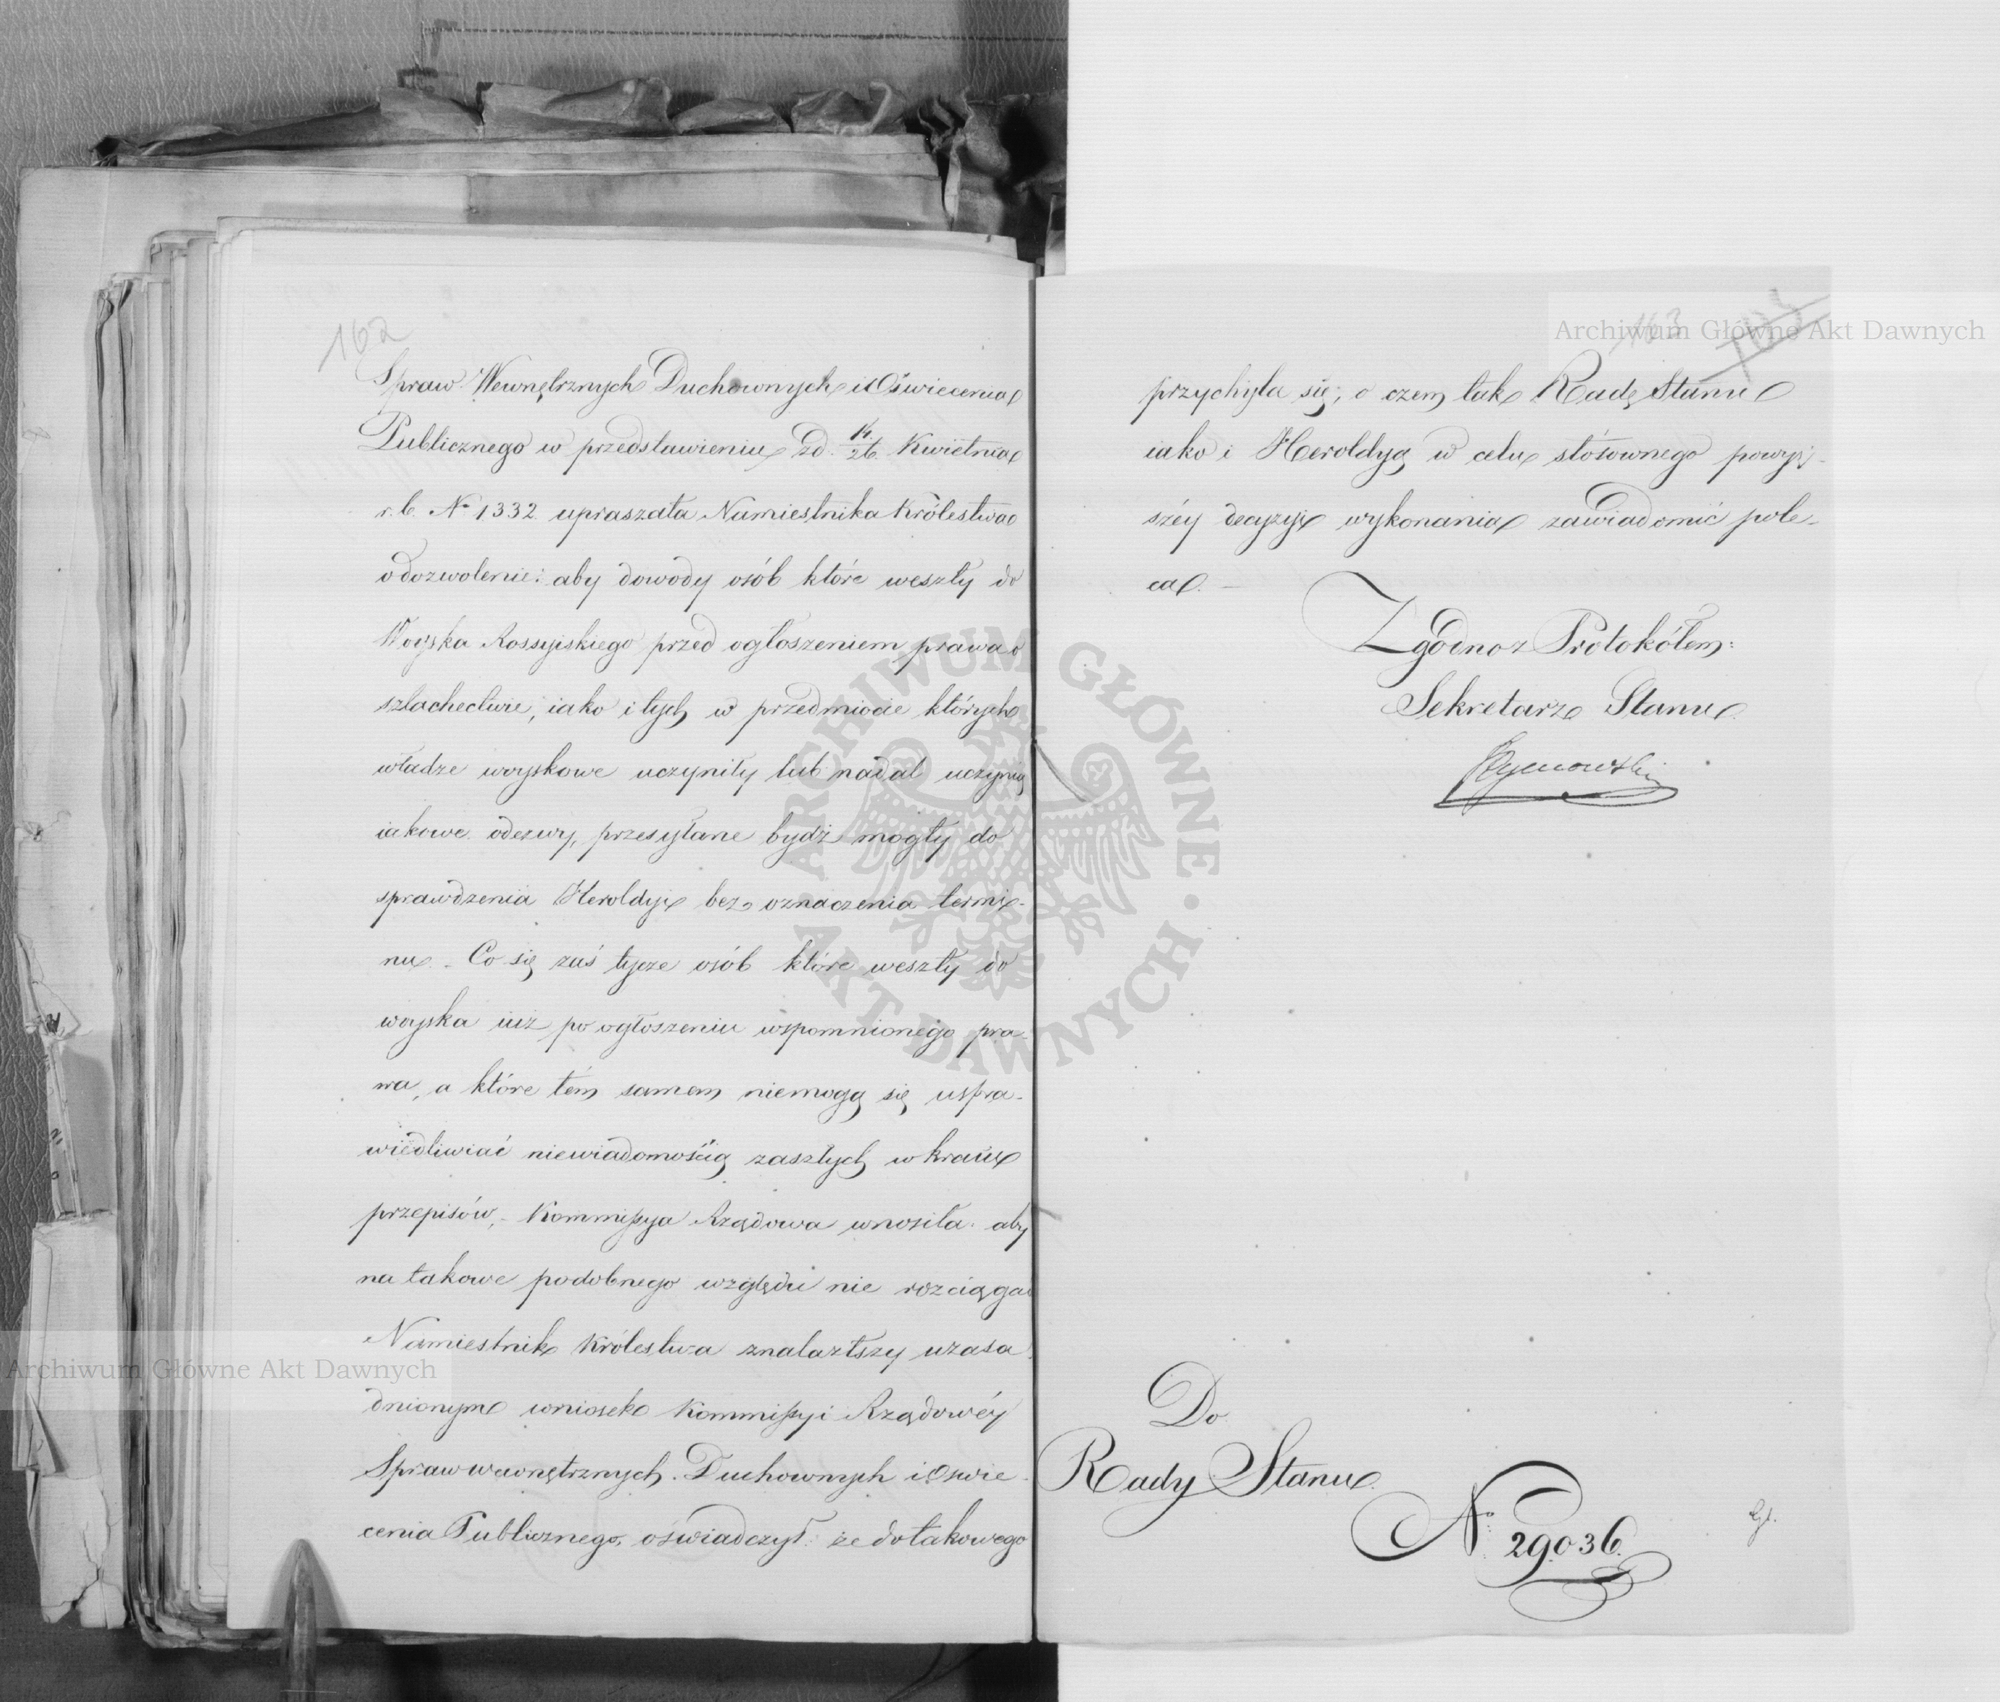 162
Spraw Wewnętrznych Duchownych i Oświecenia
Publicznego w przedstawieniu z d. 14/26 Kwietnia
r. b. No 1332 upraszała Namiestnika Królestwa
o dozwolenie: aby dowody osób które weszły do
Woyska Rossyiskiego przed ogłoszeniem prawa o
szlachectwie, iako i tych w przedmiocie których
władze woyskowe uczyniły lub nadal uczynią
iakowe odezwy, przesyłane bydź mogły do
sprawdzenia Heroldyi bez oznaczenia termi-
nu. - Co się zaś tycze osób które weszły do
woyska iuż po ogłoszeniu wspomnionego pra-
wa, a które tém samem niemogą się uspra-
wiedliwiać niewiadomością zaszłych w kraiu
przepisów, - Kommissya Rządowa wnosiła: aby
na takowe podobnego względu nie rozciągać
Namiestnik Królestwa znalazłszy uzasa-
dnionym wniosek Kommissyi Rządowéy
Spraw wewnętrznych Duchownych i Oświe-
cenia Publicznego, oświadczył: że do takowego
163
przychyla się; o czem tak Radę Stanu
iako i Heroldyą w celu stósownego powyż-
széy decyzyi wykonania zawiadomić pole-
ca. -
Zgodno z Protokółem:
Sekretarz Stanu
Tymowski
Do
Rady Stanu
No 29036.
Archiwum Główne Akt Dawnych
Archiwum Główne Akt Dawnych
ARCHIWUM GŁÓWNE · AKT DAWNYCH ·